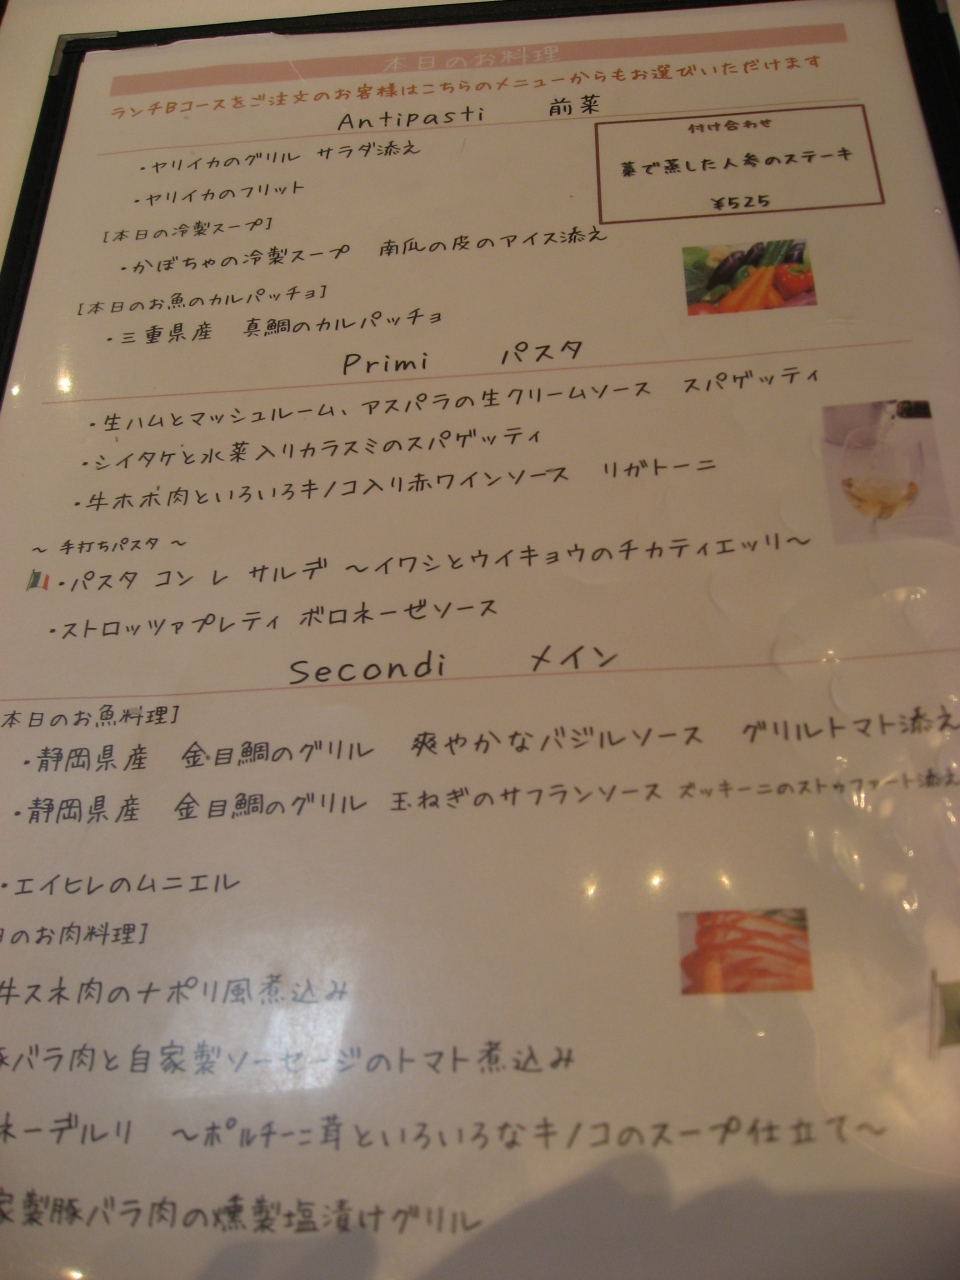 本日のお料理
ランチBコースをご注文のお客様はこちらのメニューからもお選びいただけます
Antipasti 前菜
・ヤリイカのグリル サラダ添え
・ヤリイカのフリット
付け合わせ
藁で蒸した人参のステーキ
¥525
[本日の冷製スープ]
・かぼちゃの冷製スープ 南瓜の皮のアイス添え
[本日のお魚のカルパッチョ]
・三重県産 真鯛のカルパッチョ
Primi パスタ
・生ハムとマッシュルーム、アスパラの生クリームソース スパゲッティ
・シイタケと水菜入りカラスミのスパゲッティ
・牛ホホ肉といろいろキノコ入り赤ワインソース リガトーニ
～ 手打ちパスタ ～
・パスタ コン レ サルデ ～イワシとウイキョウのチカティエッリ～
・ストロッツァプレティ ボロネーゼソース
Secondi メイン
本日のお魚料理]
・静岡県産 金目鯛のグリル 爽やかなバジルソース グリルトマト添え
・静岡県産 金目鯛のグリル 玉ねぎのサフランソース ズッキーニのストゥファート添え
・エイヒレのムニエル
日のお肉料理]
牛スネ肉のナポリ風煮込み
豚バラ肉と自家製ソーセージのトマト煮込み
ネーデルリ ～ポルチーニ茸といろいろなキノコのスープ仕立て～
家製豚バラ肉の燻製塩漬けグリル